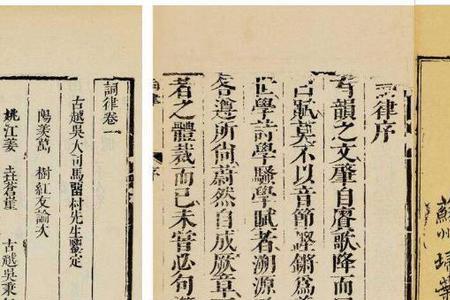 詞律序
有韻之文肇自賡歌降而
古賦莫不以音節鏗鏘爲
世學詩學騷學賦者溯源
各遵所尙蔚然自成厥章
者之體裁而已未嘗必句
詞律卷一
古越吳大司馬留村先生鑒定
陽羨萬 樹紅友論次
姚江姜 垚蒼崖
古越吳秉
蘇州掃葉